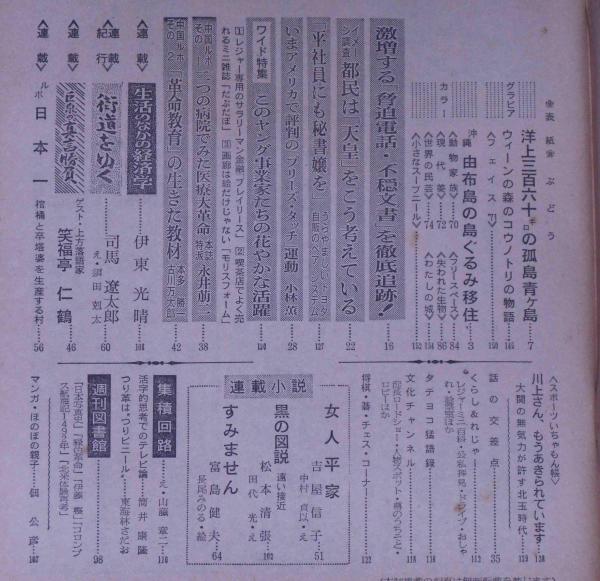 表紙 ぶどう
グラビア
洋上三百六十㌔の孤島青ケ島……7
ウィーンの森のコウノトリの物語……145
〈フェイスT〉……150
カラー
沖縄 由布島の島ぐるみ移住……3
〈動物家族〉……70 〈フリースペース〉……84
〈現代美〉……72 〈失われた生物〉……86
〈世界の民芸〉……74 〈わたしの城〉……134
〈小さなスーブニール〉……152
激増する“脅迫電話・不穏文書”を徹底追跡!……16
イメージ調査 都民は「天皇」をこう考えている……22
“平社員にも秘書嬢を” うらやましい!トヨタ自販のペアシステム……127
いまアメリカで評判の「プリーズ・タッチ」運動 小林薫……28
ワイド特集 このヤング事業家たちの花やかな活躍……120
①レジャー専用のサラリーマン金融「プレイリース」 ②喫茶店でよく売れるミニ雑誌「だぶだぼ」 ③画廊は絵だけじゃない「モリスフォーム」
中国ルポ その1 二つの病院でみた医療大革命 本誌特派 永井萠二……38
中国ルポ その2 “革命教育”の生きた教材 本多勝一 古川万太郎……42
〈連載〉 生活のなかの経済学……伊東光晴……108
〈連載紀行〉 街道をゆく……司馬遼太郎 え・須田剋太……60
〈連載〉 ゲスト・上方落語家 笑福亭仁鶴……46
〈連載〉 ルポ 日本一 棺桶と卒塔婆を生産する村……56
〈スポーツいちゃもん帳〉
川上さん、もうあきられています……128
大関の無気力が許す北玉時代……129
話の交差点……35
くらし&れじゃ……112
タテヨコ猛語録……118
文化チャンネル……116
将棋・碁・チェス・コーナー……132
連載小説
女人平家 吉屋信子 中村貞以・え……51
黒の図説 遠い接近 松本清張 田代光・え……102
すみません 富島健夫 長尾みのる・絵……64
集積回路……え・山藤章二……110
活字的思考でのテレビ論……筒井康隆
つり革は、つりビニール……東海林さだお
週刊図書館……98
マンガ・ほのぼの親子……佃公彦……107